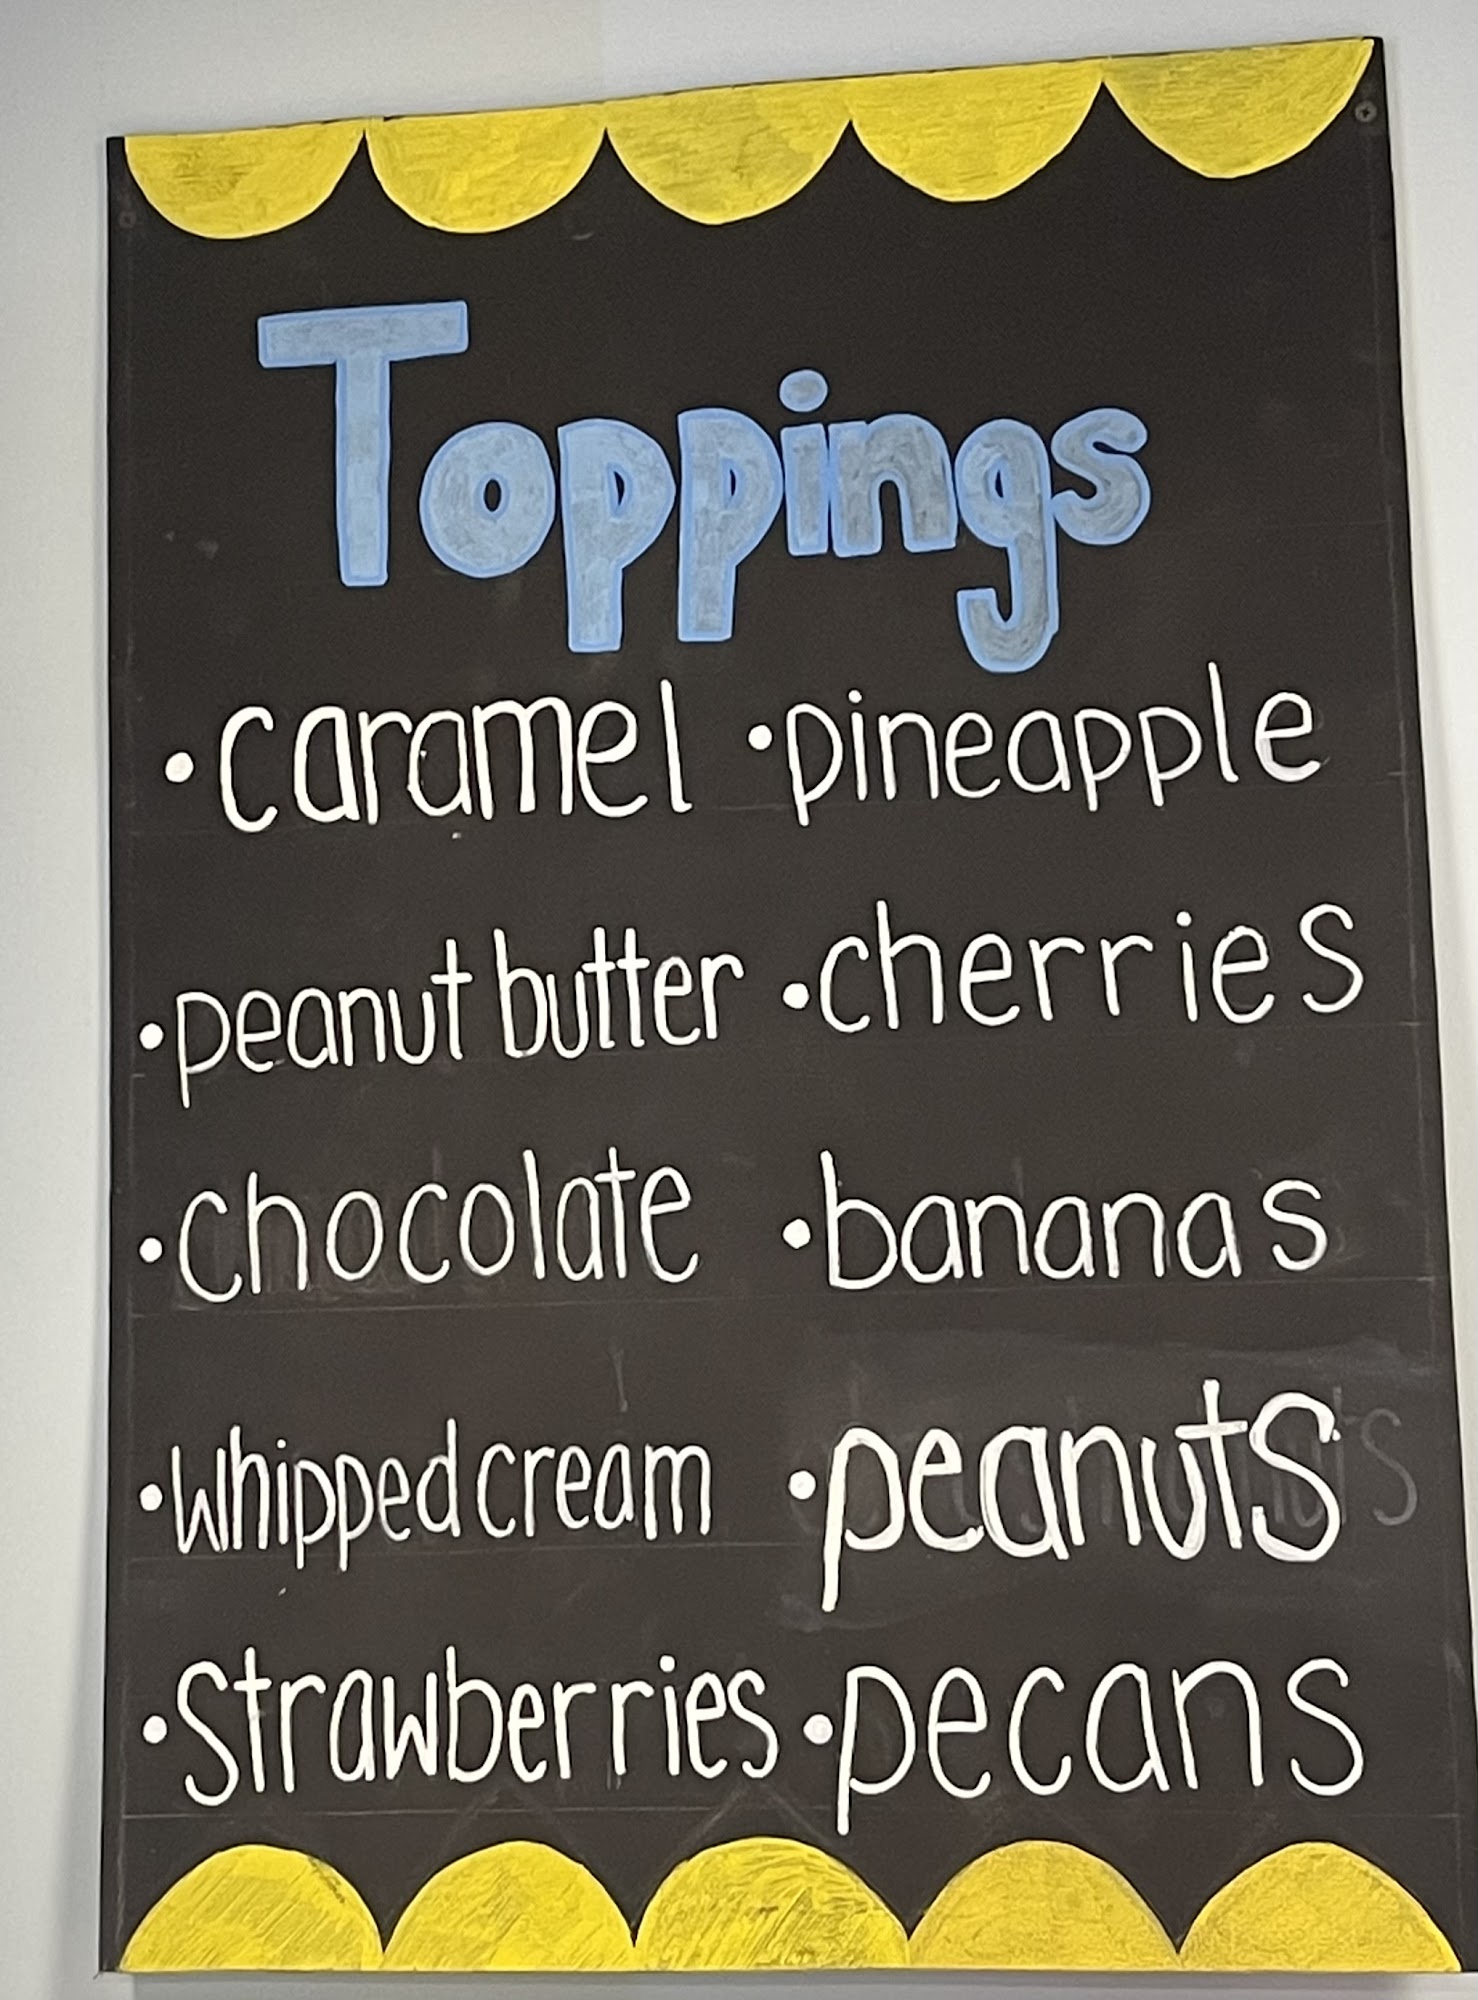 Toppings
•caramel •pineapple
•peanut butter •cherries
•chocolate •bananas
•whipped cream •peanuts
•Strawberries •pecans